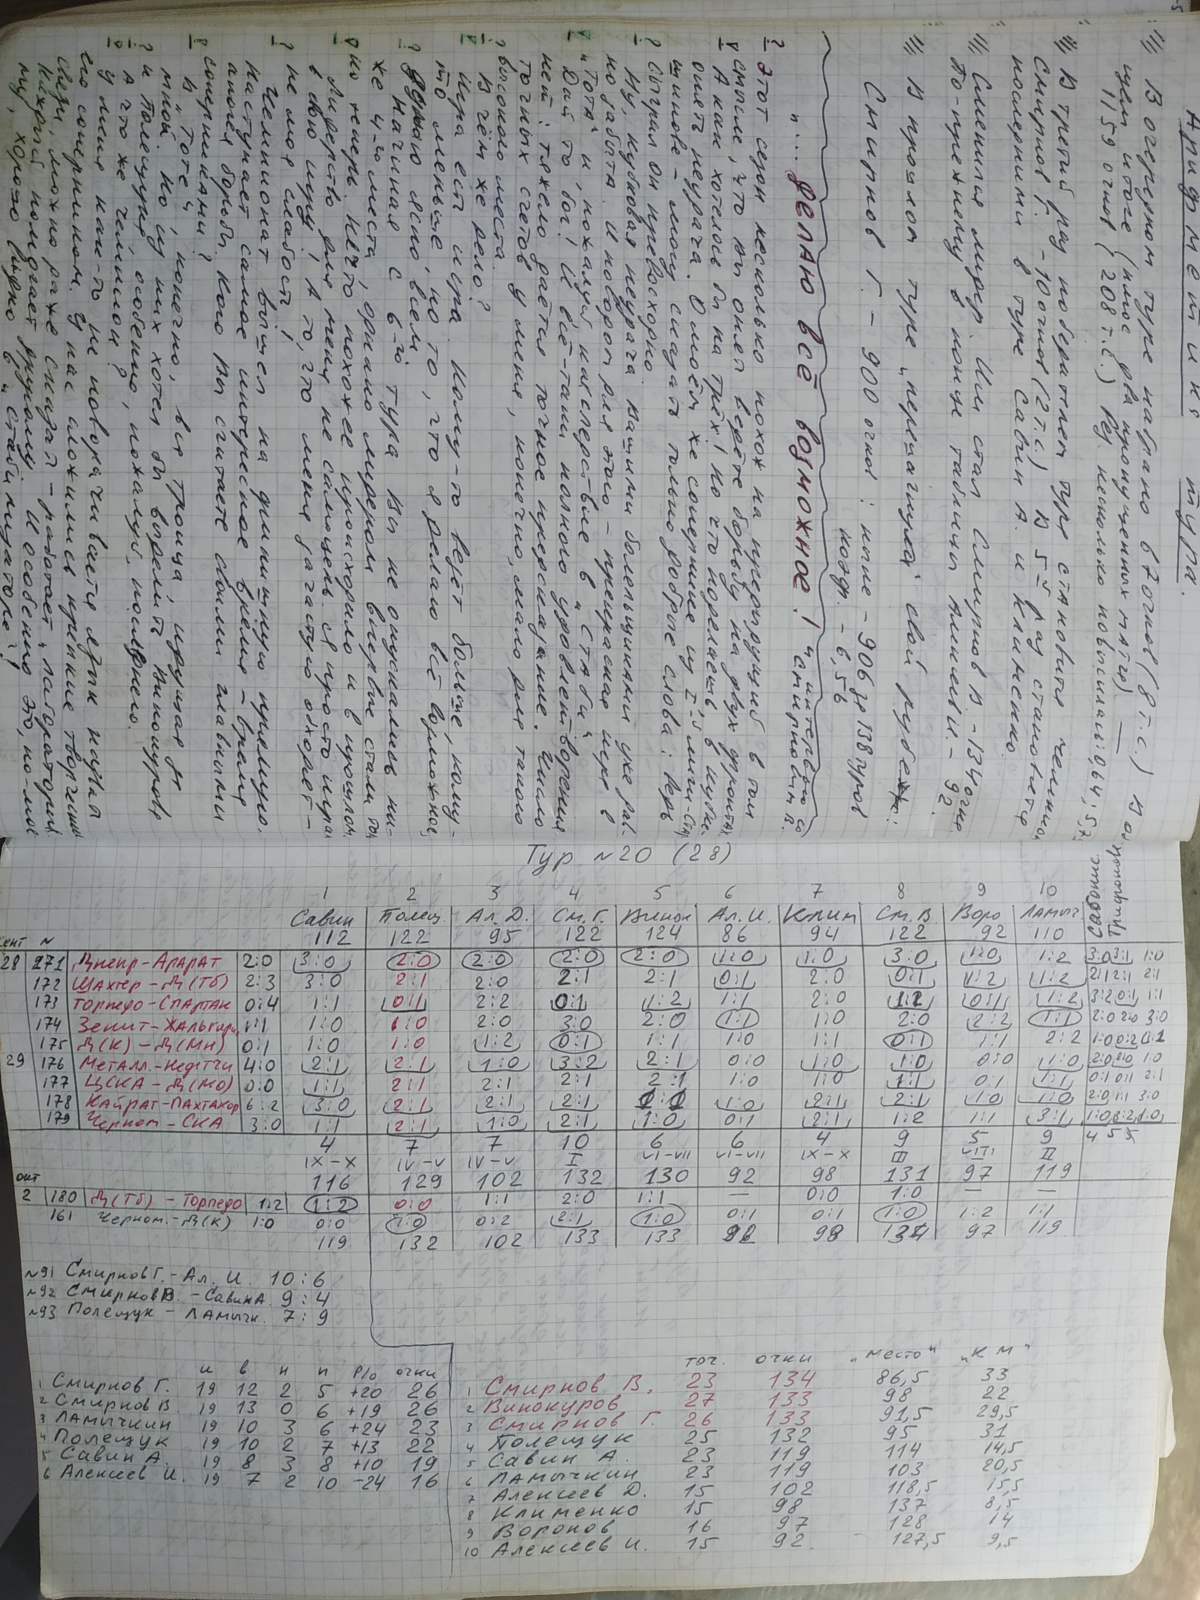 Арифметика тура.
/// В очередном туре набрано 67 очков (8 т.с.) В об-
щем итоге (плюс два пропущенных матча)
1159 очков (208 т.с.)
/// В третий раз победителем тура становится чемпион
Смирнов Г. - 10 очков (2 т.с.) В 5й раз становятся
последними в туре Савин А. и Клименко.
/// Сменился лидер. Им стал Смирнов В - 134 очка
По-прежнему в конце таблицы Алексеев - 92.
/// В прошлом туре "перешагнул" свой рубеж:
Смирнов Г. - 900 очков: ныне - 906 за 138 туров
коэфф. - 6,56
"... Делаю всё возможное!"
интервью со
Смирновым В.
? Этот сезон несколько похож на предыдущий в том
смысле, что вы опять ведёте борьбу на двух фронтах
! А как хотелось бы на трёх! Но что поделаешь, в кубке
опять неудача. О моём же сопернике из
- могу сказать только доброе слова:
сыграл он превосходно.
? Ну, кубковая неудача нашими болельщиками уже
забыта. И поводом для этого - прекрасная игра в
"Тота" и, пожалуй лидерство в "Стаби"
! Дай то бог! И всё-таки полного удовлетворения
нет: тяжело даётся точное предсказание. Число
точных счетов у меня, конечно, мало для такого
высокого места.
? В чём же дело?
! Игра есть игра. Кому-то везёт больше, кому-
то меньше, но то, что я делаю всё возможное
ясно всем.
? Начиная с 6-го тура Вы не опускались ни-
же 4-го места, однако лидером впервые стали
но теперь. Нечто похожее происходило и в прошлом
! Лидерство для меня не самоцель. Я просто играю
в свою игру! А то, что меня зачастую обходят -
не моя слабость!
? Чемпионат вышел на финишную прямую.
Наступает самое интересное время - время
апогея борьбы. Кого Вы считаете своими главными
соперниками?
! В "Тоте", конечно, вся троица, идущая за
мной. Но из них хотел бы выделить Винокурова
и Полещука, особенно, пожалуй, последнего.
? А что же чемпион?
! У меня как-то не поворачивается язык назвать
его соперником. У нас сложились крепкие творческие
связи, можно даже сказал - работает "лаборатория"
Каждый помогает другому. И особенно это, по-мое-
му, хорошо видно в "стабилизаторе"!
Тур №20 (28)
1 2 3 4 5 6 7 8 9 10
Савин Полещ Ал. Д. См. Г. Винок Ал. И. Клим См. В Воро Ламыч Сабонис Трифонов
сент N 112 122 95 122 124 86 94 122 92 110
28 171 Днепр-Арарат 2:0 3:0 2:0 2:0 2:0 2:0 1:0 1:0 3:0 1:0 1:2 3:0 3:1 1:0
172 Шахтер - Д(Тб) 2:3 3:0 2:1 2:0 2:1 2:1 0:1 2:0 0:1 1:2 1:2 2:1 2:1 2:1
173 Торпедо-Спартак 0:4 1:1 0:1 2:2 0:1 1:2 1:1 2:0 1:2 0:1 1:2 3:2 0:1 1:1
174 Зенит-Жальгирис 1:1 1:0 1:0 2:0 3:0 2:0 1:1 1:0 2:0 2:2 1:1 2:0 2:0 3:0
175 Д(К) - Д(Мн) 0:1 1:0 1:0 1:2 0:1 1:1 1:0 1:1 0:1 1:1 2:2 1:0 0:2
29 176 Металл.-Нефтчи 4:0 2:1 2:1 1:0 3:2 2:1 0:0 1:0 1:0 0:0 1:0 2:0 1:0
177 ЦСКА - Д(Мо) 0:0 1:1 2:1 2:1 2:1 2:1 1:0 1:0 1:1 0:1 1:1 0:1 0:1 2:1
178 Кайрат-Пахтакор 6:2 3:0 2:1 2:1 2:1 1:0 2:1 2:1 1:0 1:0 2:0 1:1 3:0
179 Черном - СКА 3:0 1:1 2:1 1:0 2:1 1:0 0:1 2:1 1:2 1:1 3:1 1:0
4 7 7 10 6 6 4 9 5 9 4 5 5
IX-X IV-V IV-V I VI-VII VI-VII IX-X III VIII II
окт 116 129 102 132 130 92 98 131 97 119
2 180 Д(Тб) - Торпедо 1:2 1:2 0:0 1:1 2:0 1:1 — 0:0 1:0 — —
161 Черном. - Д(К) 1:0 0:0 1:0 0:2 2:1 1:0 0:1 0:1 1:0 1:2 1:1
119 132 102 133 133 92 98 134 97 119
№91 Смирнов Г. - Ал. И. 10:6
№92 Смирнов В. - Савин А 9:4
№93 Полещук - Ламычк. 7:9
и в н п р/о очки
1 Смирнов Г. 19 12 2 5 +20 26
2 Смирнов В 19 13 0 6 +19 26
3 Ламычкин 19 10 3 6 +24 23
4 Полещук 19 10 2 7 +13 22
5 Савин А. 19 8 3 8 +10 19
6 Алексеев И. 19 7 2 10 -24 16
точ. очки "место" "КМ"
1 Смирнов В. 23 134 86,5 33
2 Винокуров 27 133 98 22
3 Смирнов Г. 26 133 91,5 29,5
4 Полещук 25 132 95 31
5 Савин А. 23 119 114 14,5
6 Ламычкин 23 119 103 20,5
7 Алексеев Д. 15 102 118,5 15,5
8 Клименко 15 98 137 8,5
9 Воронов 16 97 128 14
10 Алексеев И. 15 92 127,5 9,5